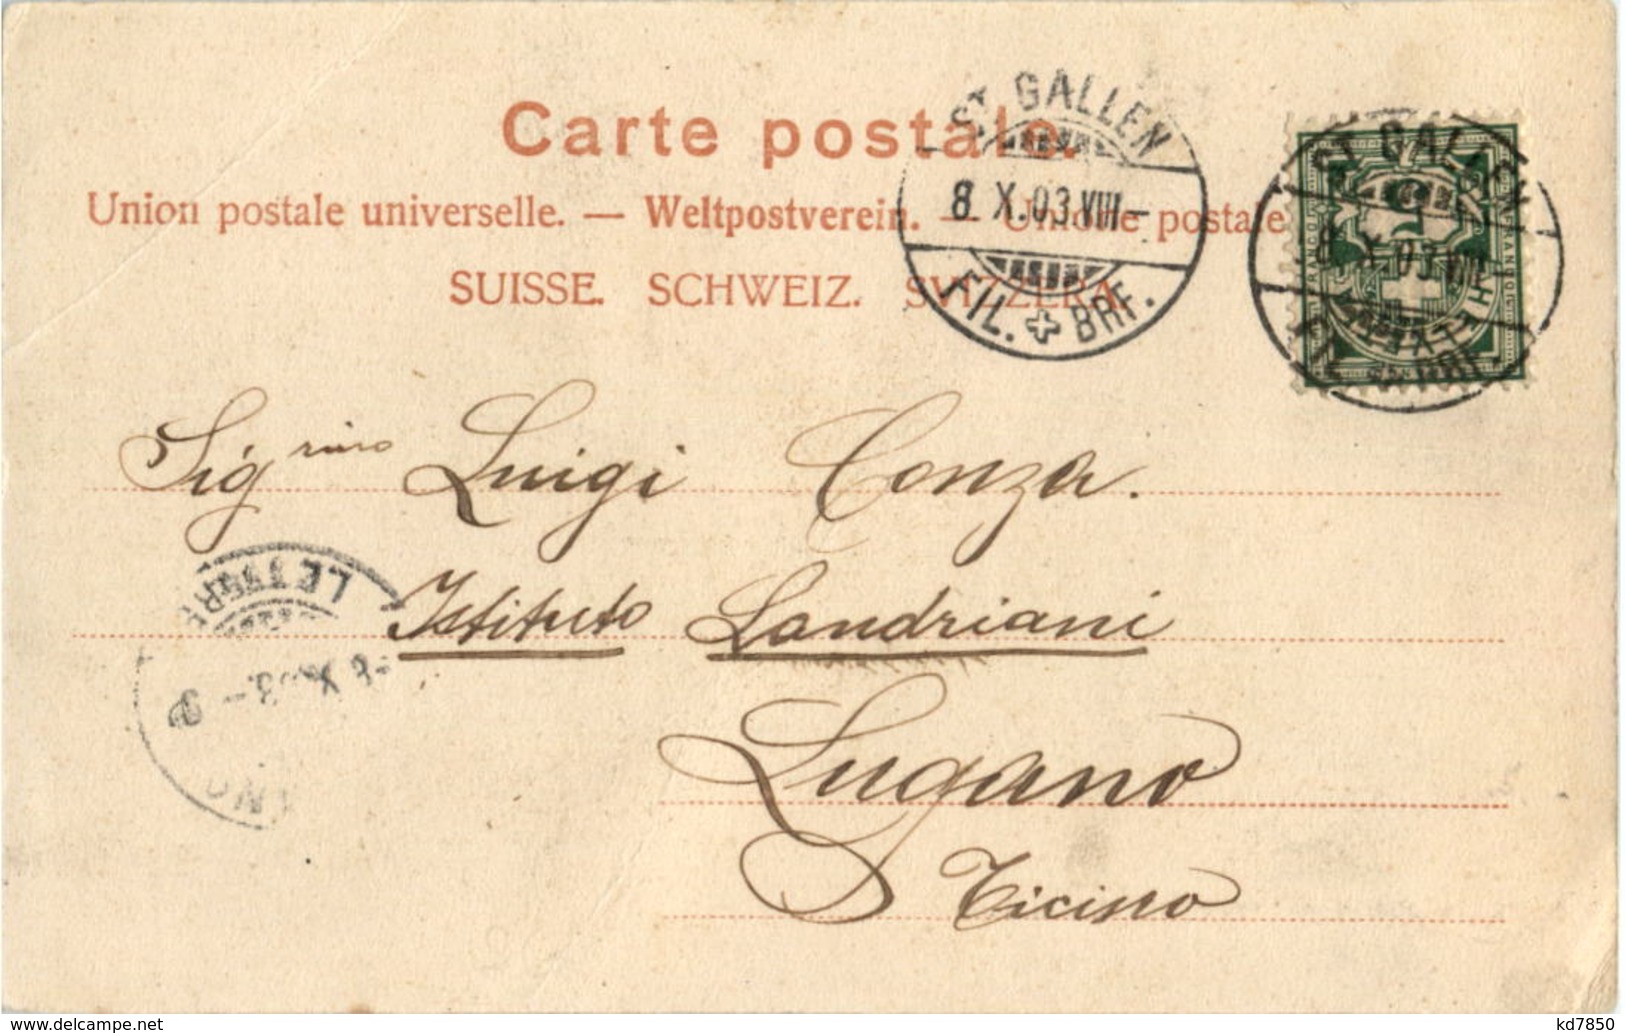 Carte postale.
Union postale universelle. — Weltpostverein. — Unione postale
SUISSE. SCHWEIZ. SVIZZERA
ST. GALLEN
8 X.03.VIII–
FIL. + BRF.
ST. GALLEN
8 X 03 VIII
FRANCO
HELVETIA
Sig Luigi Conza.
Istituto Landriani
Lugano
Ticino
LETT
8 X 03. –
delcampe.net
kd7850